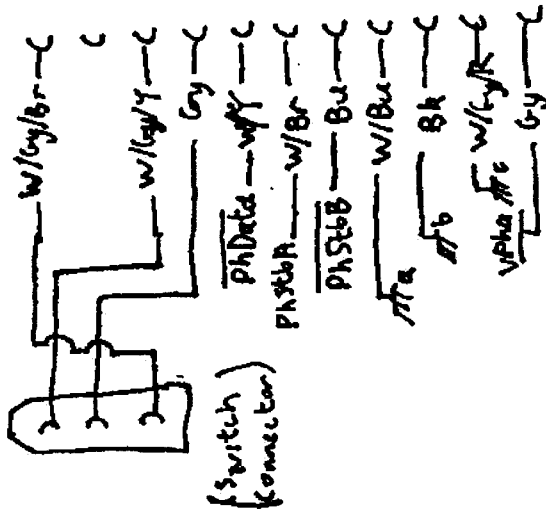 W/Gy/Br
W/Gy/Y
Gy
PhData W/Y
PhStbA W/Br
PhStbB Bu
W/Bu
a
Bk
b
W/Gy/R
c
VPha Gy
(Switch
Connector)